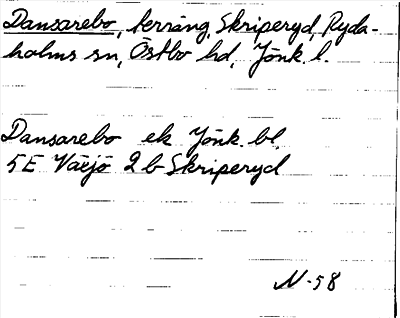 Dansarebo, terräng, Skriperyd, Ryda-
holms sn, Östbo hd, Jönk. l.
Dansarebo ek Jönk. bl.
5E Växjö 2b Skriperyd
N-58